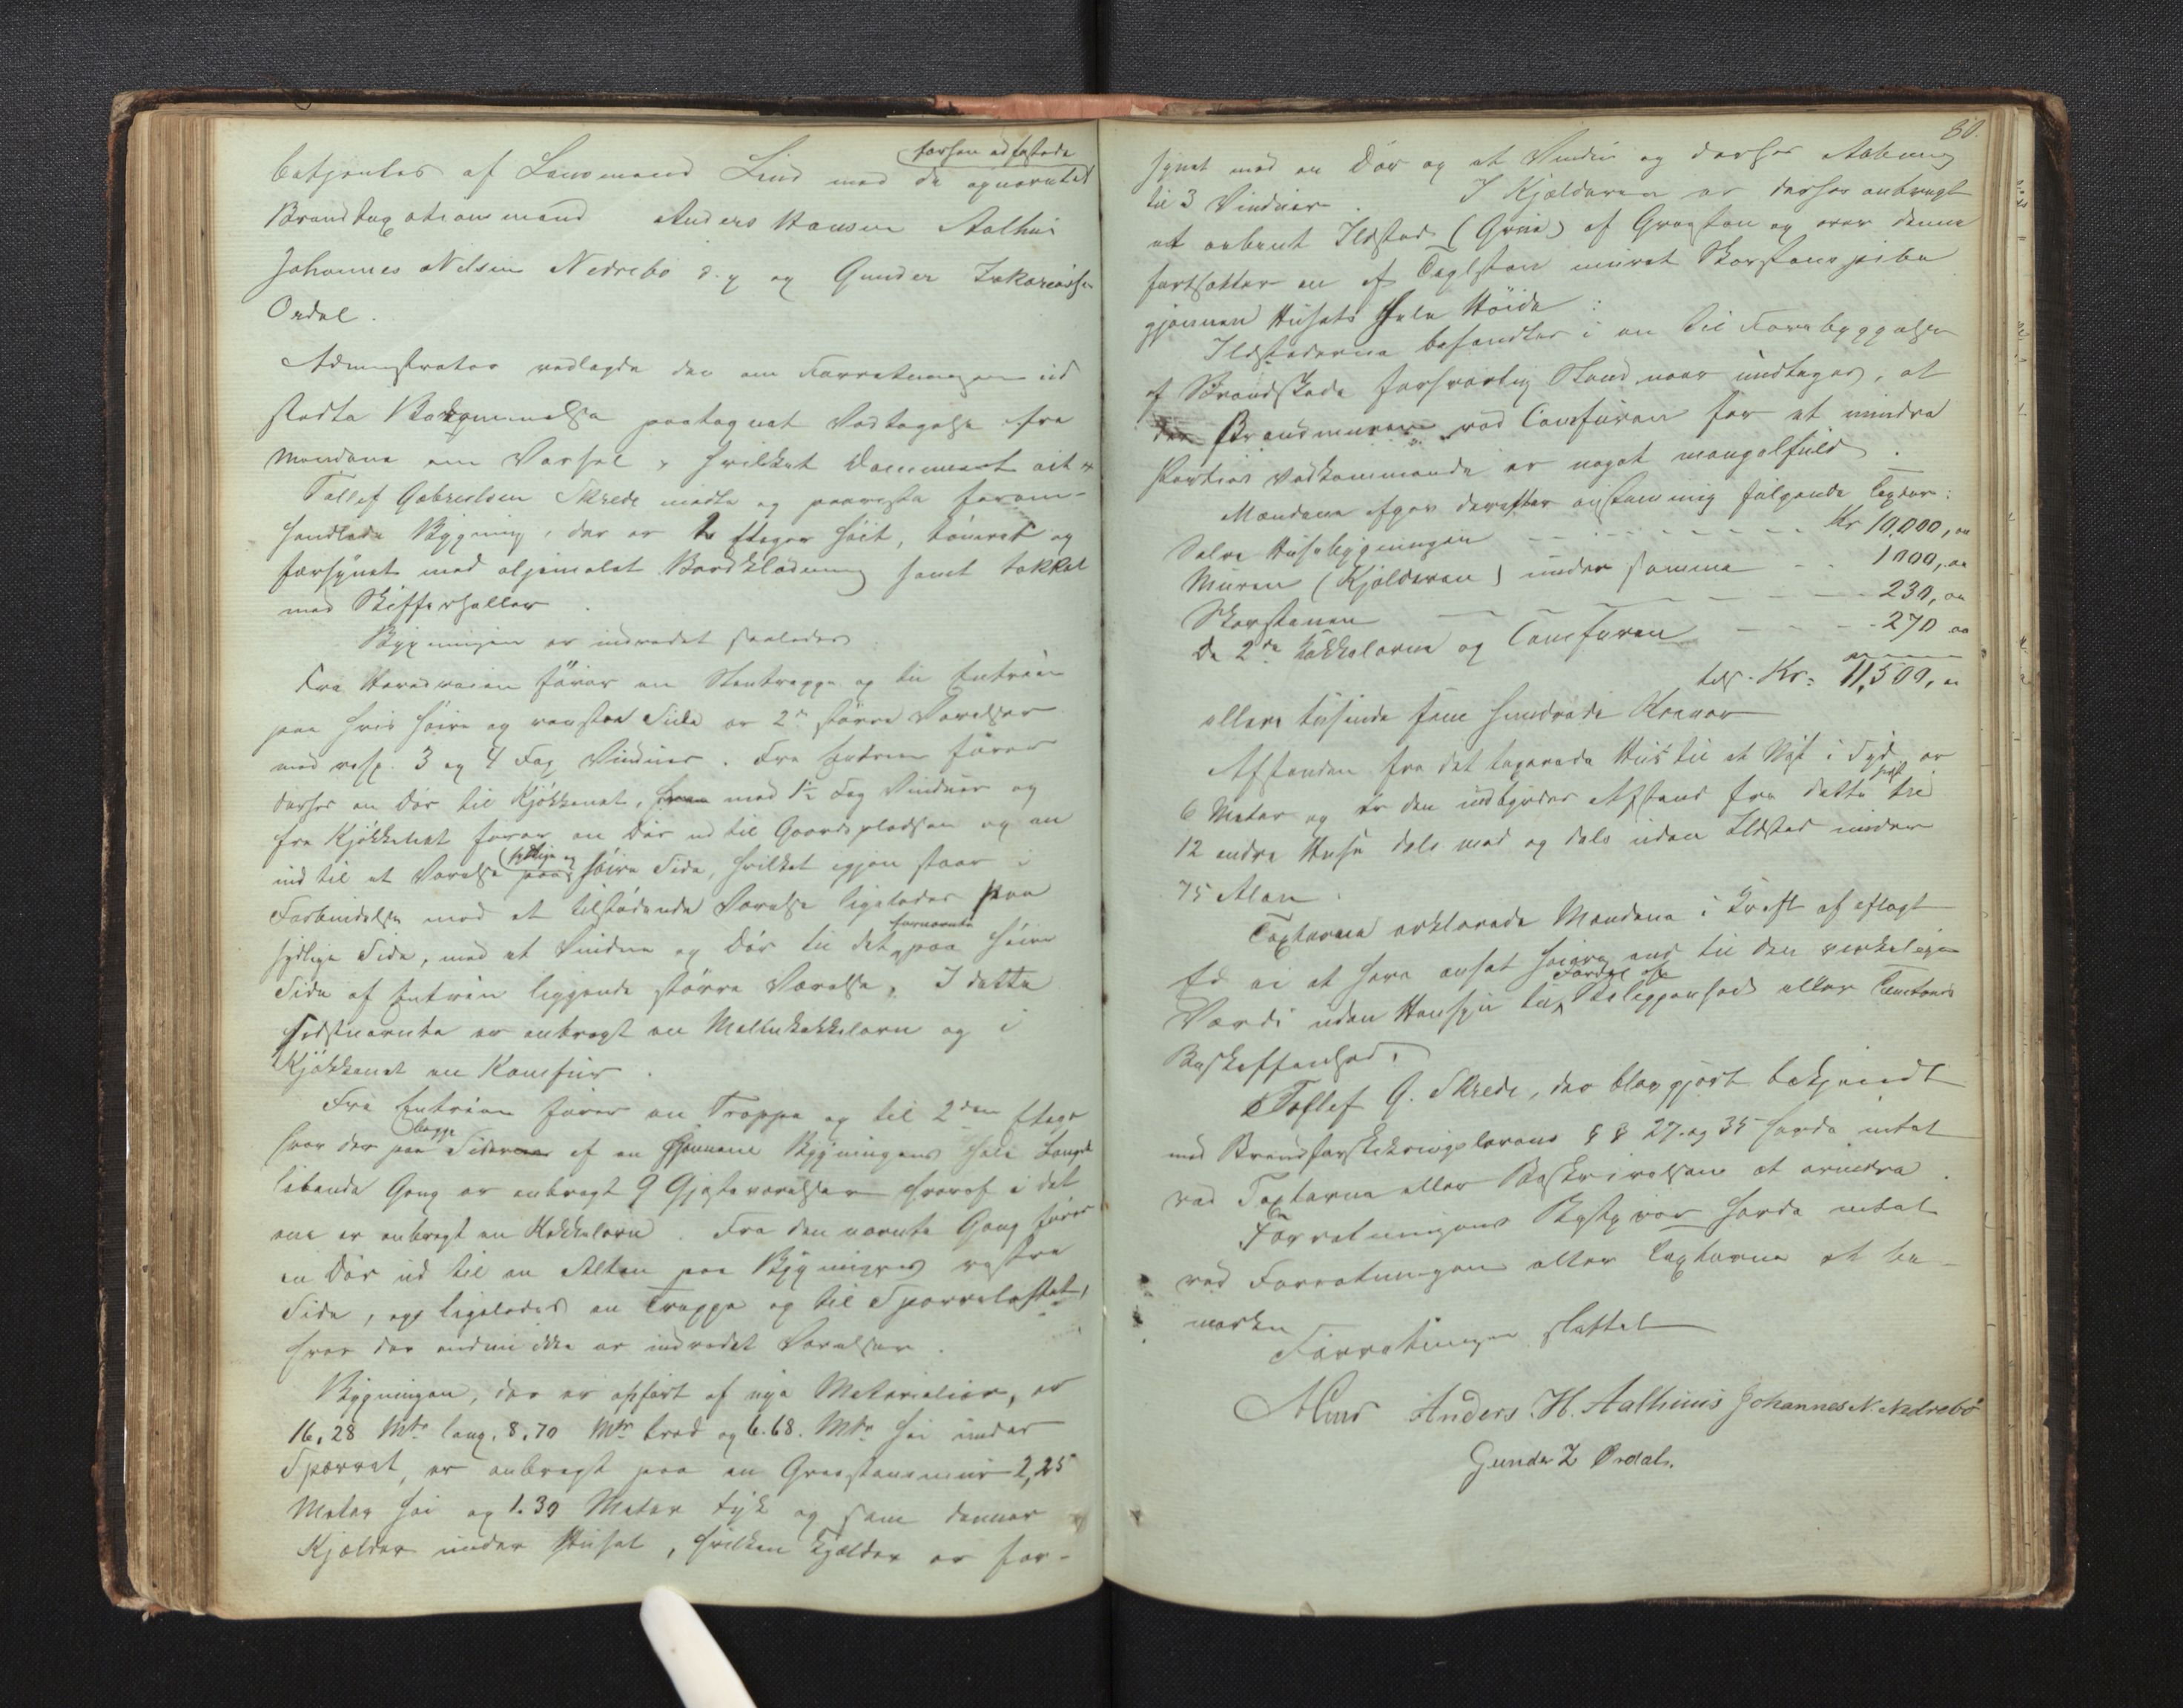 forhen edfæstede
betjentes af Lensmand Lind med de opnævnte
Brandtaxationsmænd Anders Hansen Aalhus
Johannes Nilsen Nedrebø d. y og Gunder Zakariassen
Ordal.
Administrator vedlagde den om Forretningen ud-
stedte Bekjendtgjørelse paategnet Vedtagelse fra
Mændene om Varsel, hvilket Document
Tollef Gabrielsen Skrede mødte og paaviste forom-
handlede Bygning, der er 2 Etager høit, tømret og
forsynet med oljemalet Bordklædning samt tækket
med Skifferheller.
Bygningen er indredet saaledes
Fra Hovedveien fører en Stentrappe op til Entreen
paa hvis høire og venstre Side er 2de større Værelser
med resp. 3 og 4 Fag Vinduer. Fra Entreen fører
derhos en Dør til Kjøkkenet, med 1½ Fag Vinduer og
fra Kjøkkenet fører en Dør ud til Gaardspladsen og en
ind til et Værelse paa sydlige og høire Side, hvilket igjen staar i
Forbindelse med et tilstødende Værelse ligeledes paa
sydlige Side, med et Vindue og Dør til det fornævnte paa høire
Side af Entreen liggende større Værelse. I dette
sidstnævnte er anbragt en Mellemkakkelovn og i
Kjøkkenet en Komfur.
Fra Entreen fører en Trappe op til 2den Etage
hvor der paa begge Sider af en gjennem Bygningens hele Længde
løbende Gang er anbragt 9 Gjesteværelser hvoraf i det
ene er anbragt en Kakkelovn. Fra den nævnte Gang fører
en Dør ud til en Altan paa Bygningens vestre
Side, og ligeledes en Trappe op til Sparreloftet,
hvor der endnu ikke er indredet Værelser.
Bygningen, der er opført af nye Materialier, er
16,28 Mtr lang, 8,70 Mtr bred og 6.68. Mtr høi under
Sparret, er anbragt paa en Graastensmur 2,25
Meter høi og 1.30 Meter tyk og som danner
Kjelder under Huset, hvilken Kjelder er for-
80.
synet med en Dør og et Vindu og derhos Aabning
til 3 Vinduer. I Kjelderen er derhos anbragt
et aabent Ildsted (Grue) af Graasten og over denne
fortsætter en af Teglsten muret Skorstenspibe
gjennem Husets hele Høide.
Ildstederne befandtes i en til Forebyggelse
af Brandskade forsvarlig Stand naar undtages, at
Brandmuren ved Comfuren for et mindre
Parties Vedkommende er noget mangelfuld.
Mændene afgav derefter enstemmig følgende Taxter:
Selve Husebygningen - - - - - - Kr 10,000, 00
Muren (Kjelderen) under samme - - 1000, 00
Skorstenen - - - - - - 230, 00
De 2de Kakkelovne og Comfuren - - - - 270 00
tils. Kr: 11,500, 00
elleve tusinde fem hundrede Kroner
Afstanden fra det taxerede Hus til et Nøst i Syd er
6 Meter og er den indbyrdes Afstand fra dette Nøst til
12 andre Huse dels med og dels uden Ildsted under
75 Alen.
Taxterne erklærede Mændene i Kraft af aflagt
Ed ei at have ansat høiere end til den virkelige
Værdi uden Hensyn til Fordel af Beliggenhed eller Tomtens
Beskaffenhed.
Tollef G. Skrede, der blev gjort bekjendt
med Brandforsikringslovens §§ 27. og 35 havde intet
ved Taxterne eller Beskrivelsen at erindre.
Forretningens Bestyrer havde intet
ved Forretningen eller Taxterne at be-
mærke
Forretningen sluttet
Lind Anders. H. Aalhuus Johannes N. Nedrebø
Gunder Z Ordal.